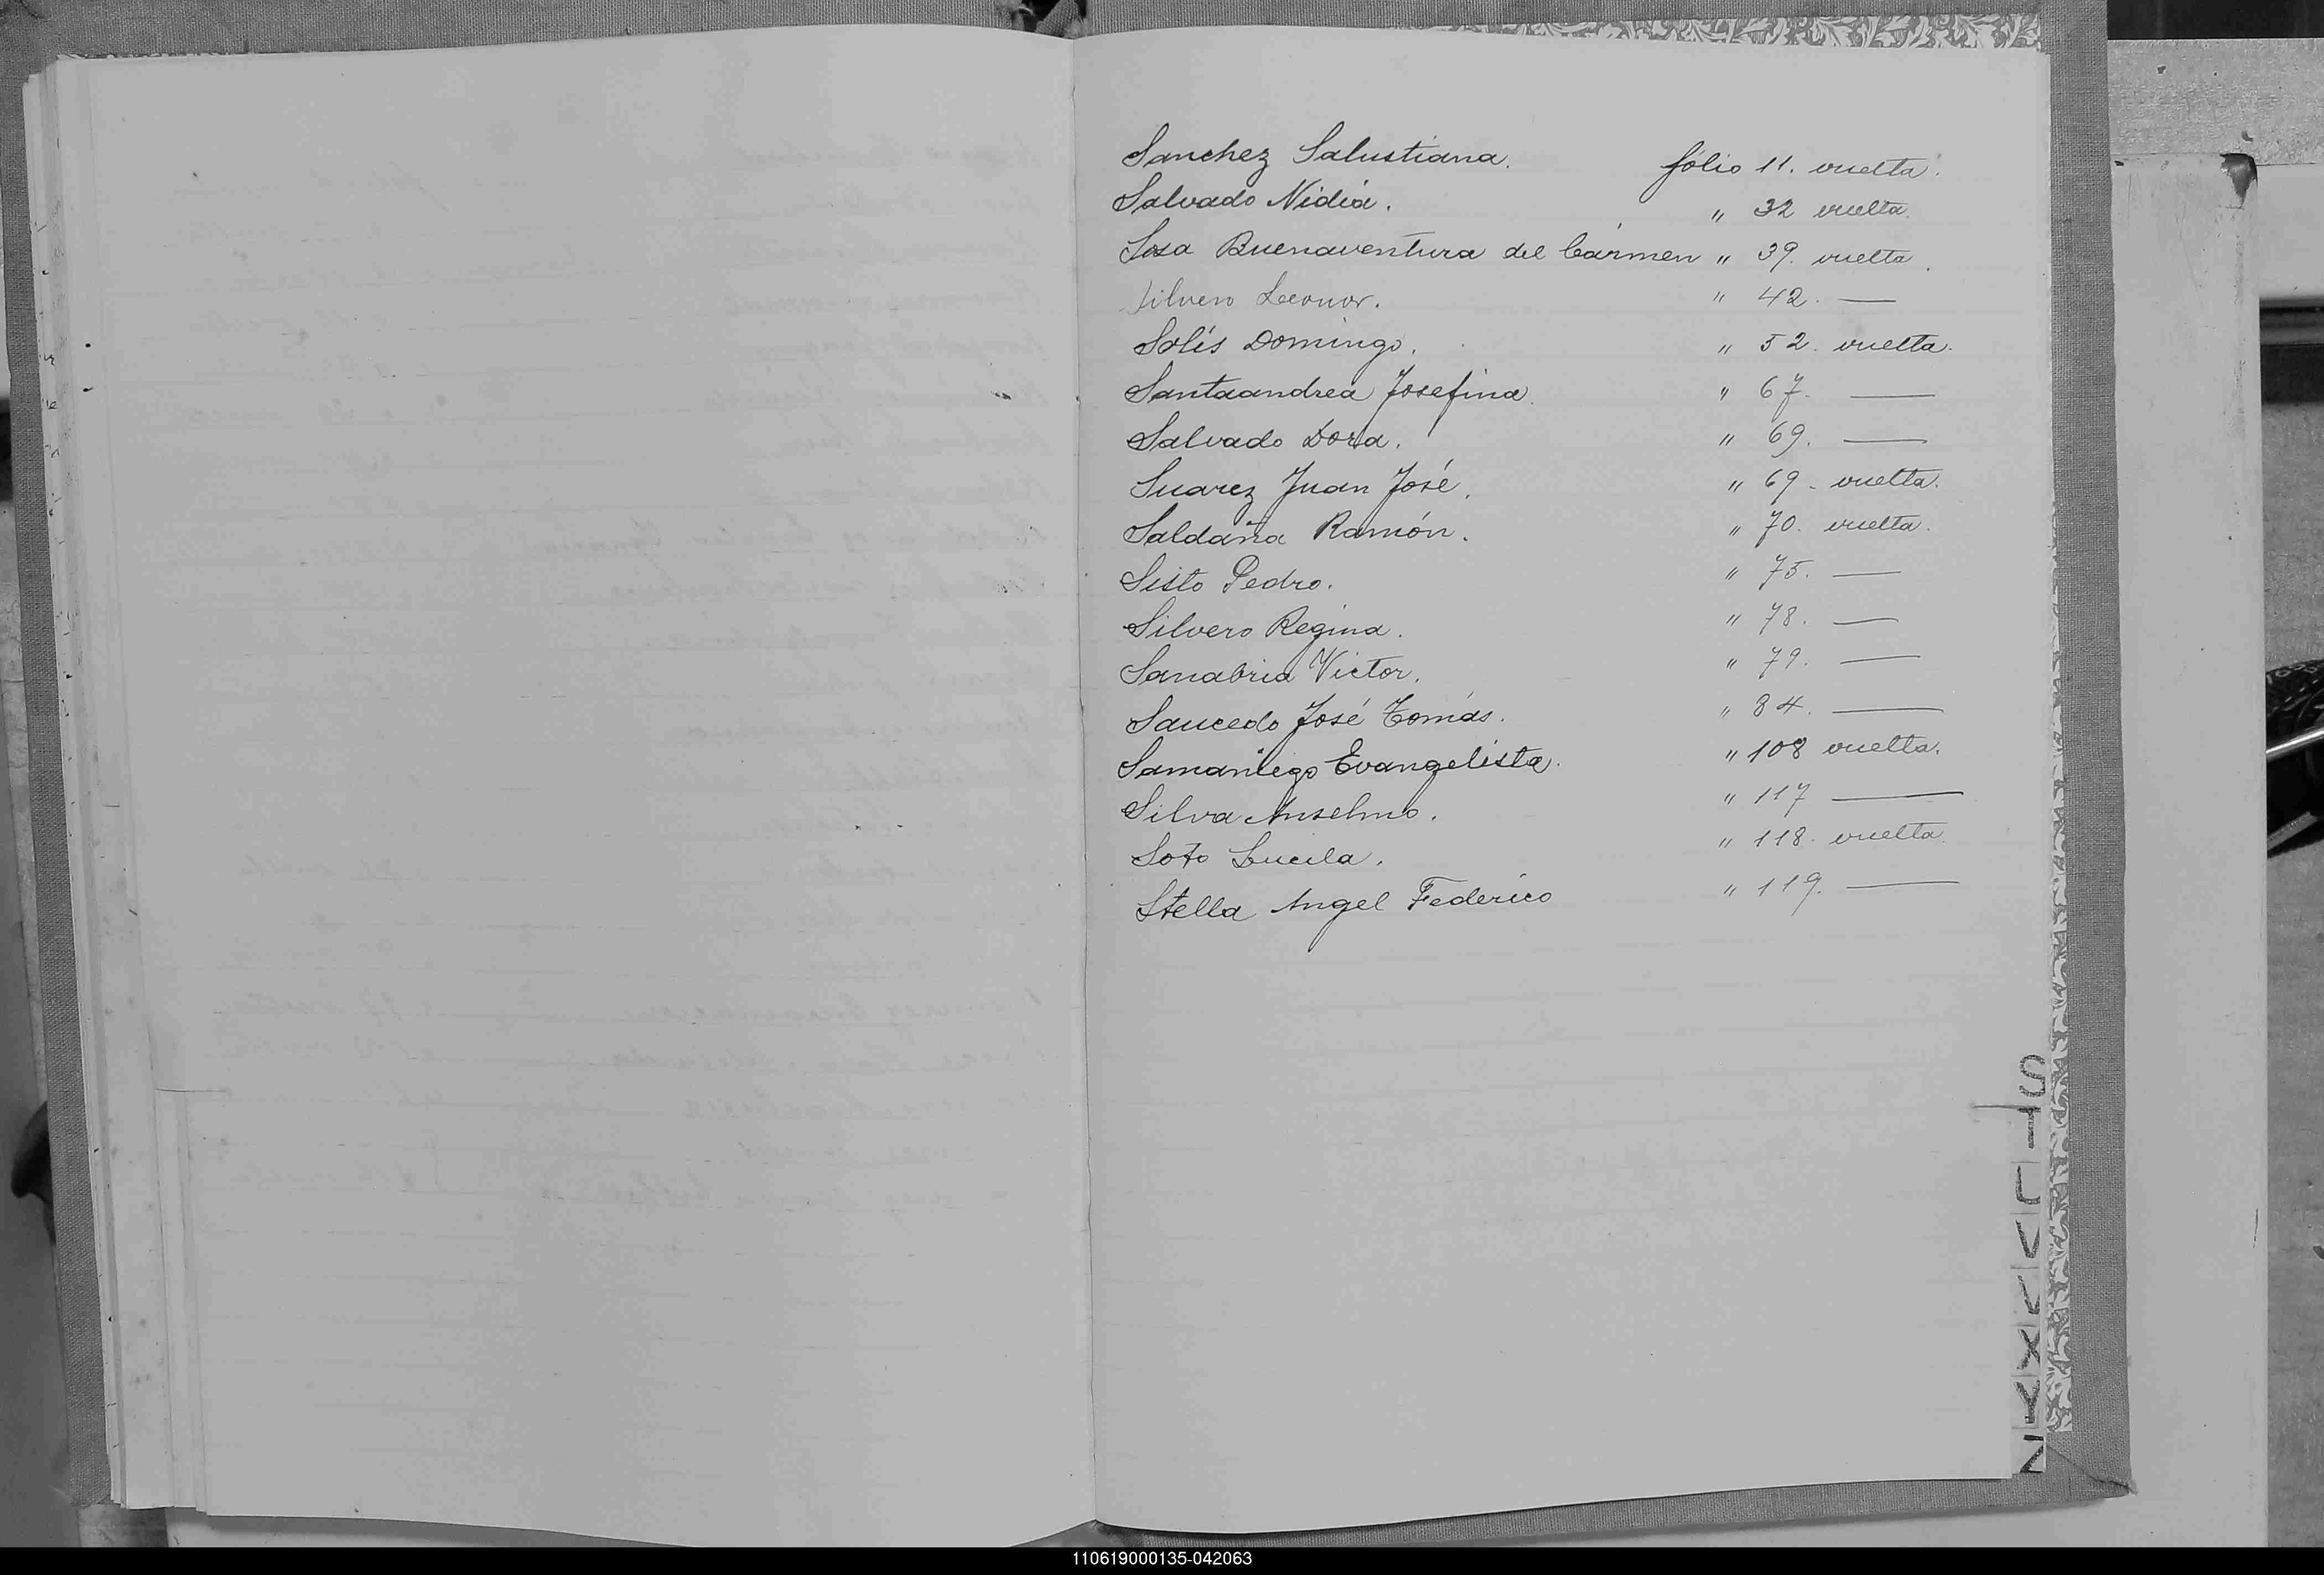 Sanchez Salustiana. fólio 11. vuelta.
Salvado Nidia. " 32 vuelta.
Sosa Buenaventura del Cármen " 39. vuelta.
Silvero Leonor. " 42. —
Solís Domingo. " 52. vuelta.
Santaandrea Josefina. " 67. —
Salvado Dora. " 69. —
Suarez Juan José. " 69. vuelta.
Saldaña Ramón. " 70. vuelta.
Sisto Pedro. " 75. —
Silvero Regina. " 78. —
Sanabria Victor. " 79. —
Saucedo José Tomás. " 84. —
Samaniego Evangelista. " 108 vuelta.
Silva Anselmo. " 117 —
Soto Lucila. " 118. vuelta.
Stella Angel Federico " 119. —
S
T
V
X
Y
Z
110619000135-042063